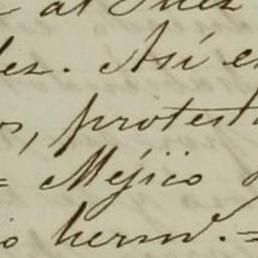 al Juez
les. Así e
os, protest
= Méjico
io herm.e =